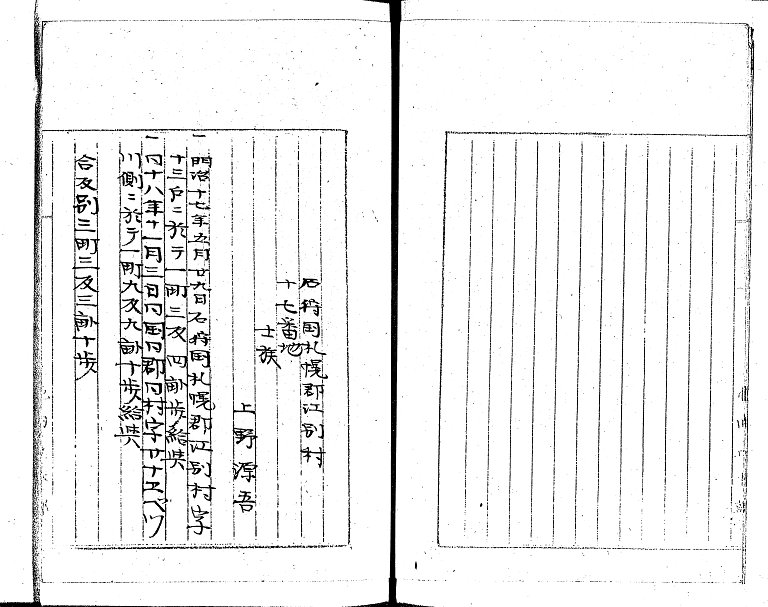 石狩国札幌郡江別村
十七番地
士族
上野源吾
一明治十七年五月廿九日石狩国札幌郡江別村字
十三戸ニ於テ一町三反四畝歩給与
一同十八年十一月三日同国同郡同村字サナエベツ
川側ニ於テ一町九反九畝十歩給与
合反別三町三反三畝十歩